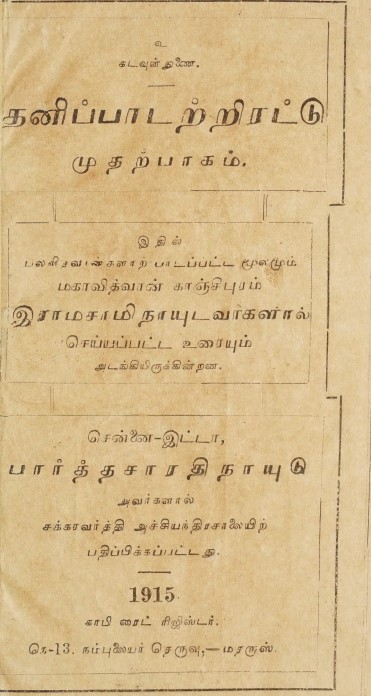 உ
கடவுள் துணை.
தனிப்பாடற்றிரட்டு
முதற்பாகம்.
இதில்
பாடப்பட்ட மூலமும்
மகாவித்வான் காஞ்சிபுரம்
இராமசாமிநாயுடவர்களால்
செய்யப்பட்ட உரையும்
அடங்கியிருக்கின்றன.
சென்னை-இட்டா,
பார்த்தசாரதிநாயுடு
அவர்களால்
சக்கரவர்த்தி அச்சியந்திரசாலையிற்
பதிப்பிக்கப்பட்டது.
1915.
காபி ரைட் ரிஜிஸ்டர்.
நெ-13. நம்புலையர் தெருவு,—மதராஸ்.